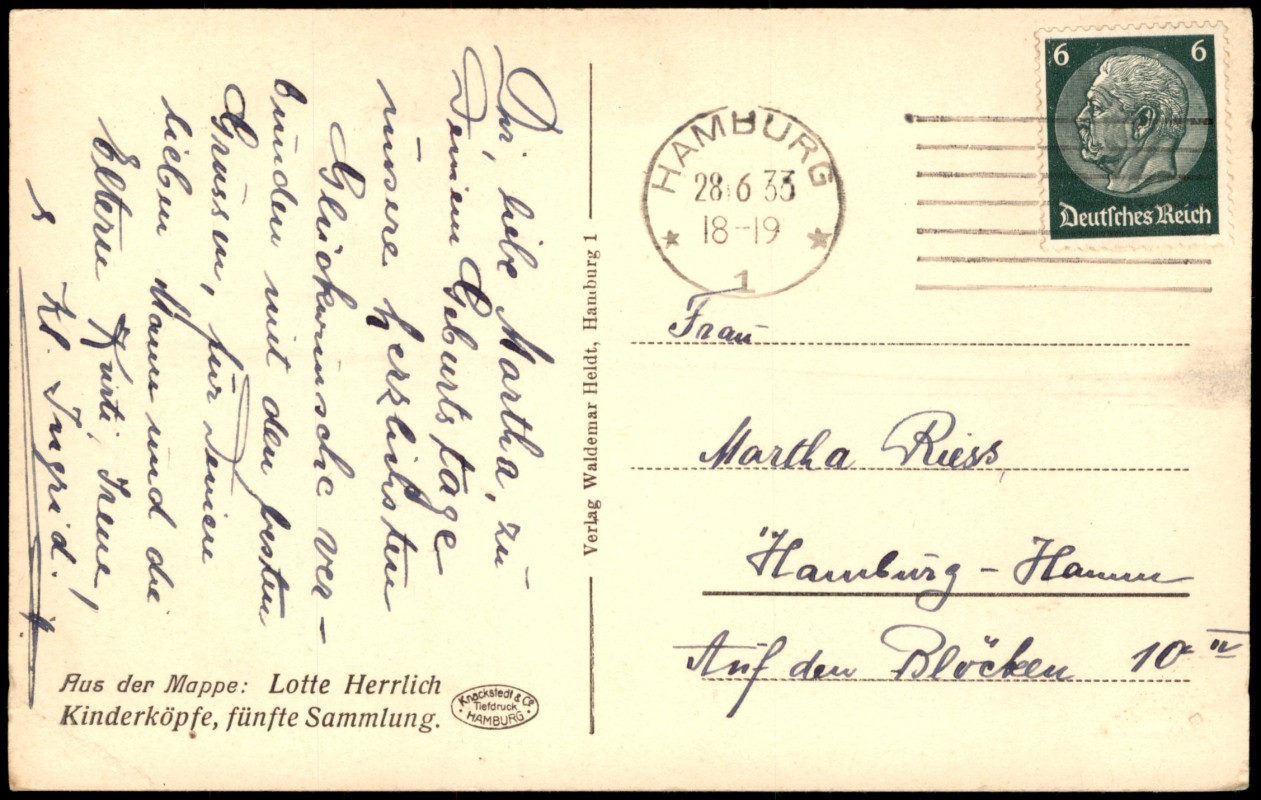 Dir, liebe Martha, zu
Deinem Geburtstage
unsere herzlichsten
Glückwünsche ver-
bunden mit den besten
Grüsen, für Deinen
lieben Mann und die
Eltern Kurti, Irene,
Kl. Ingrid.
Aus der Mappe: Lotte Herrlich
Kinderköpfe, fünfte Sammlung.
Knackstedt & Co
Tiefdruck
HAMBURG
Verlag Waldemar Heldt, Hamburg 1
HAMBURG
28.6.33
18-19
1
6 6
Deutsches Reich
Frau
Martha Riess,
Hamburg - Hamm
Auf den Blöcken 10